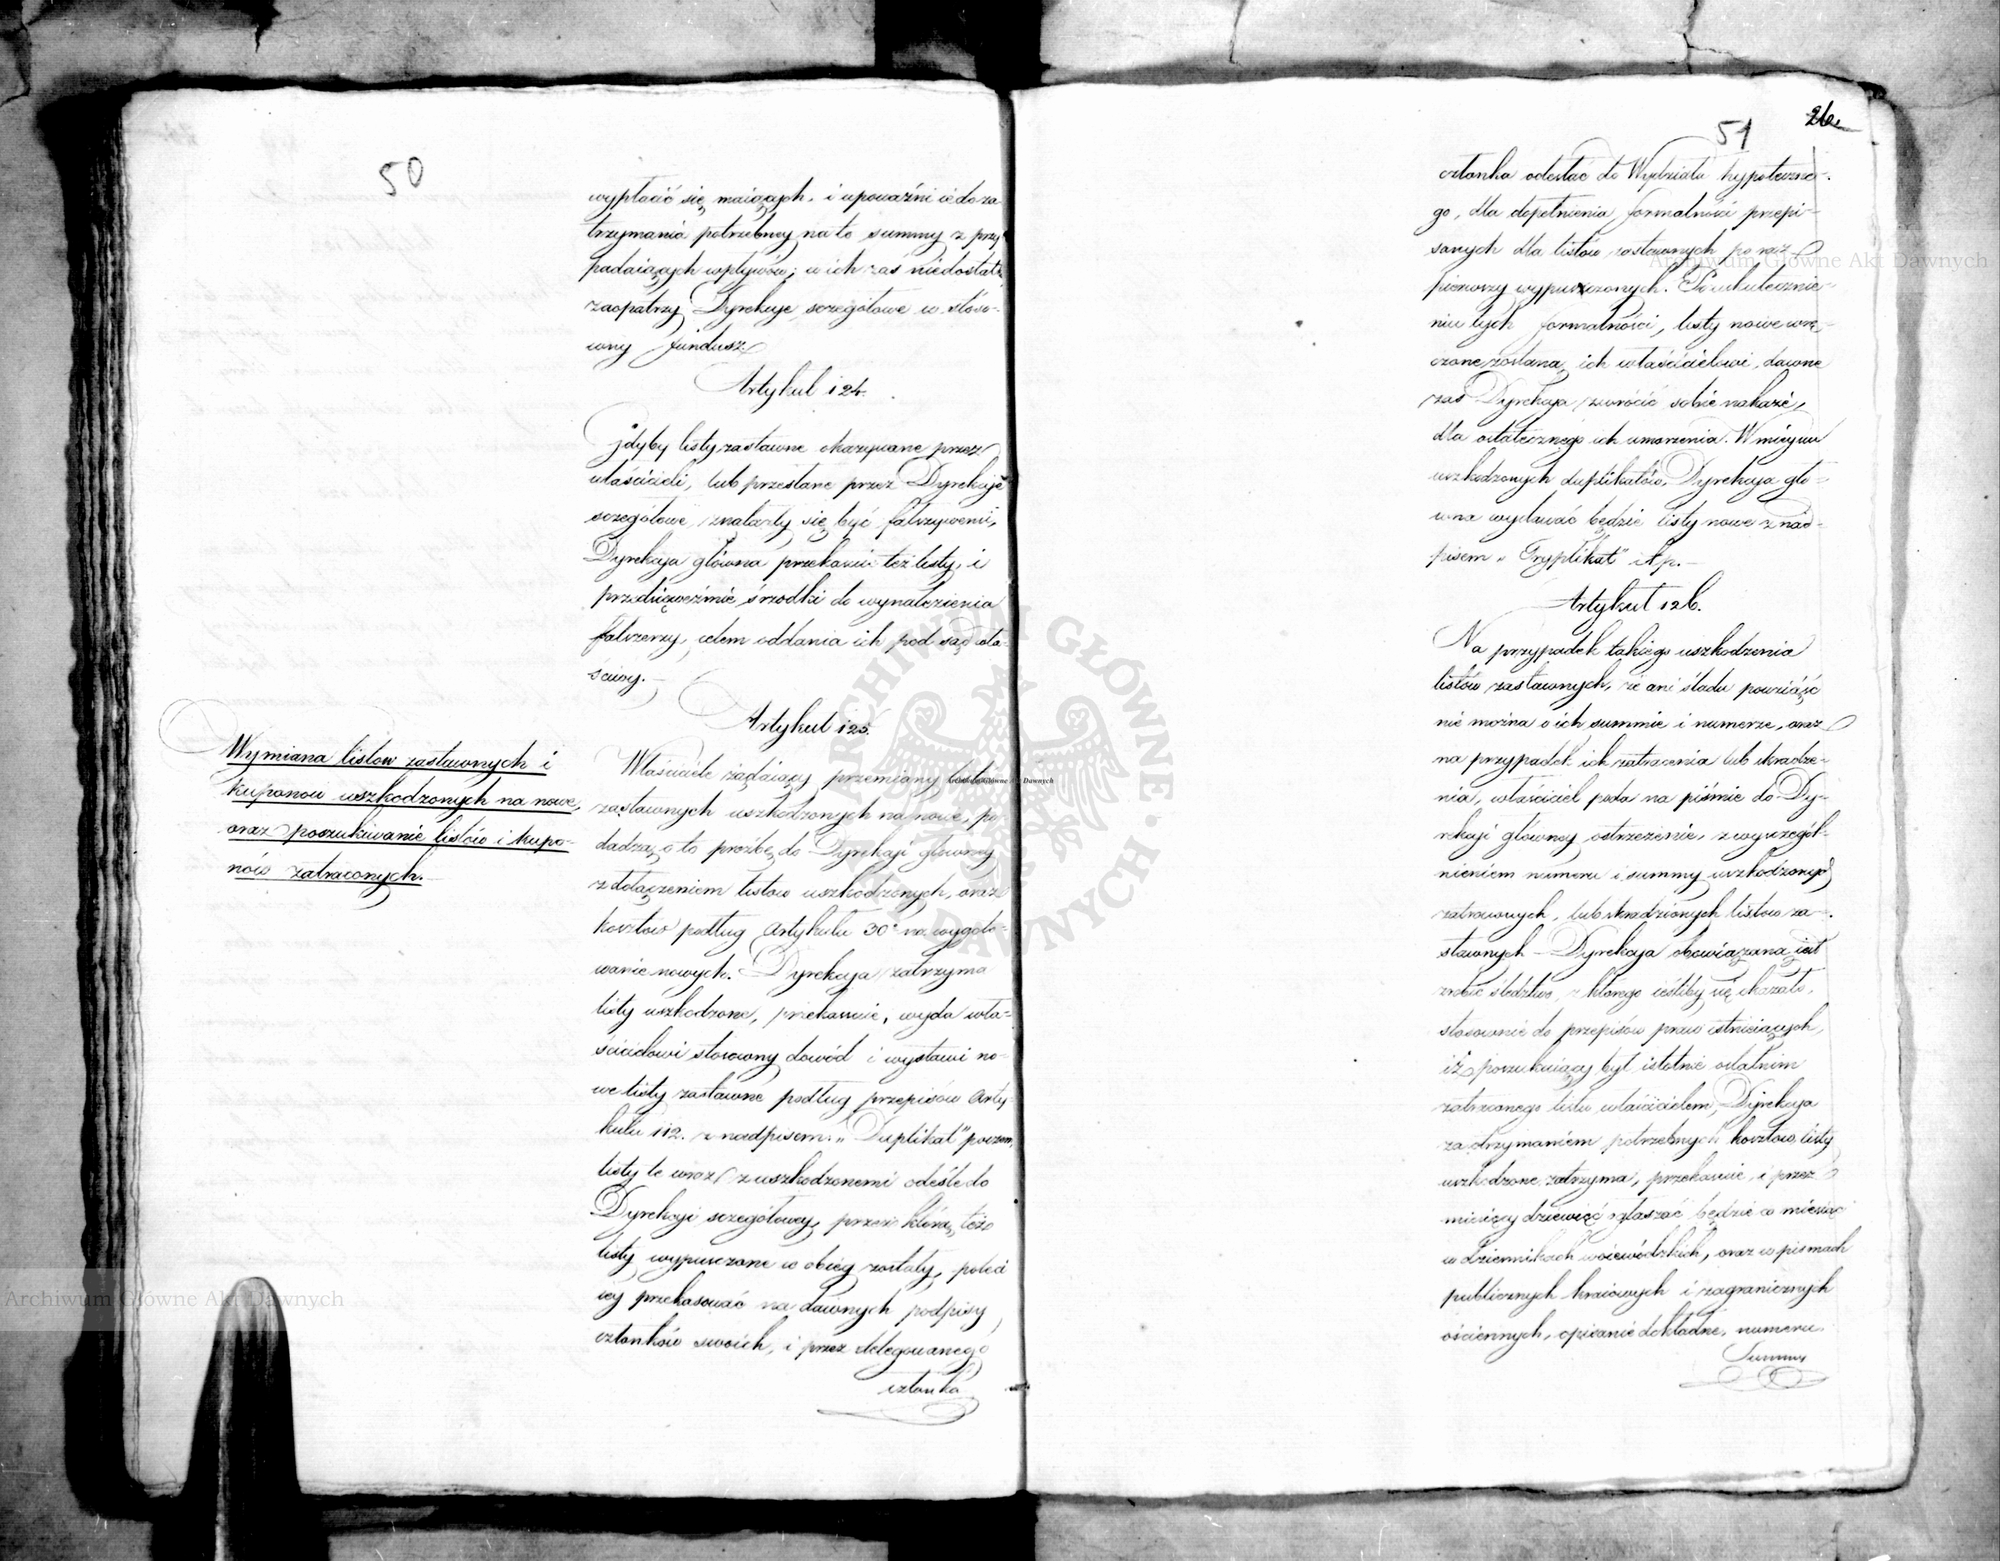 50
wypłacić się maiących, i upoważni ie do za
trzymania potrzebney na to summy z przy
padaiących wpływów; w ich zaś niedostatk
zaopatrzy Dyrekcye szczegółowe w stoso-
wny fundusz.
Artykuł 124.
Gdyby listy zastawne okazywane przez
właścicieli, lub przesłane przez Dyrekcyę
szczegółowe, znalazły się być fałszywemi,
Dyrekcya główna przekasuie też listy, i
przedsięweźmie środki do wynalezienia
fałszerzy, celem oddania ich pod sąd wła-
ściwy.
Artykuł 125.
Wymiana listow zastawnych i
kuponow uszkodzonych na nowe,
oraz poszukiwanie listów i kupo-
nów zatraconych.
Właściciele żądaiący przemiany listów
zastawnych uszkodzonych na nowe, po
dadzą o to prośbę do Dyrekcyi główney
z dołączeniem listow uszkodzonych, oraz
kosztów podług Artykułu 30º na wygoto-
wanie nowych. Dyrekcya zatrzyma
listy uszkodzone, przekasuie, wyda wła-
ścicielowi stosowny dowód i wystawi no-
we listy zastawne podług przepisów Arty-
kułu 112. z nadpisem „Duplikat" poczem,
listy te wraz z uszkodzonemi odeśle do
Dyrekcyi szczegółowey, przez którą też
listy wypuszczone w obieg zostały, poleci
iey przekasować na dawnych podpisy
członków swoich, i przez delegowanego
członka
51
26.
członka odesłać do Wydziału hypoteczne-
go, dla dopełnienia formalności przepi-
sanych dla listów zastawnych po raz
pierwszy wypuszczonych. Po uskutecznie-
niu tych formalności, listy nowe wrę-
czone zostaną ich właścicielowi, dawne
zaś Dyrekcya zwrócić sobie nakaże,
dla ostatecznego ich umorzenia. W mieysce
uszkodzonych duplikatów, Dyrekcya głó-
wna wydawać będzie listy nowe z nad-
pisem „Tryplikat" itp.
Artykuł 126.
Na przypadek takiego uszkodzenia
listów zastawnych, że ani śladu powziąść
nie można o ich summie i numerze, oraz
na przypadek ich zatracenia lub skradze-
nia, właściciel poda na piśmie do Dy-
rekcyi główney ostrzeżenie, z wyszczegól-
nieniem numeru i summy uszkodzonych
zatraconych, lub skradzionych listow za-
stawnych - Dyrekcya obowiązana iest
zrobić śledztwo, z którego ieśliby się okazało,
stosownie do przepisów praw istnieiących,
iż poszukuiący był istotnie ostatnim
zatraconego listu właścicielem, Dyrekcya
za otrzymaniem potrzebnych kosztow, listy
uszkodzone zatrzyma, przekasuie, i przez
miesięcy dziewięć ogłaszać będzie co miesiąc
w dziennikach woiewódzkich, oraz w pismach
publicznych kraiowych i zagranicznych
ościennych, opisanie dokładne, numeru
Summy
Archiwum Główne Akt Dawnych
Archiwum Główne Akt Dawnych
Archiwum Główne Akt Dawnych
ARCHIWUM GŁÓWNE AKT DAWNYCH